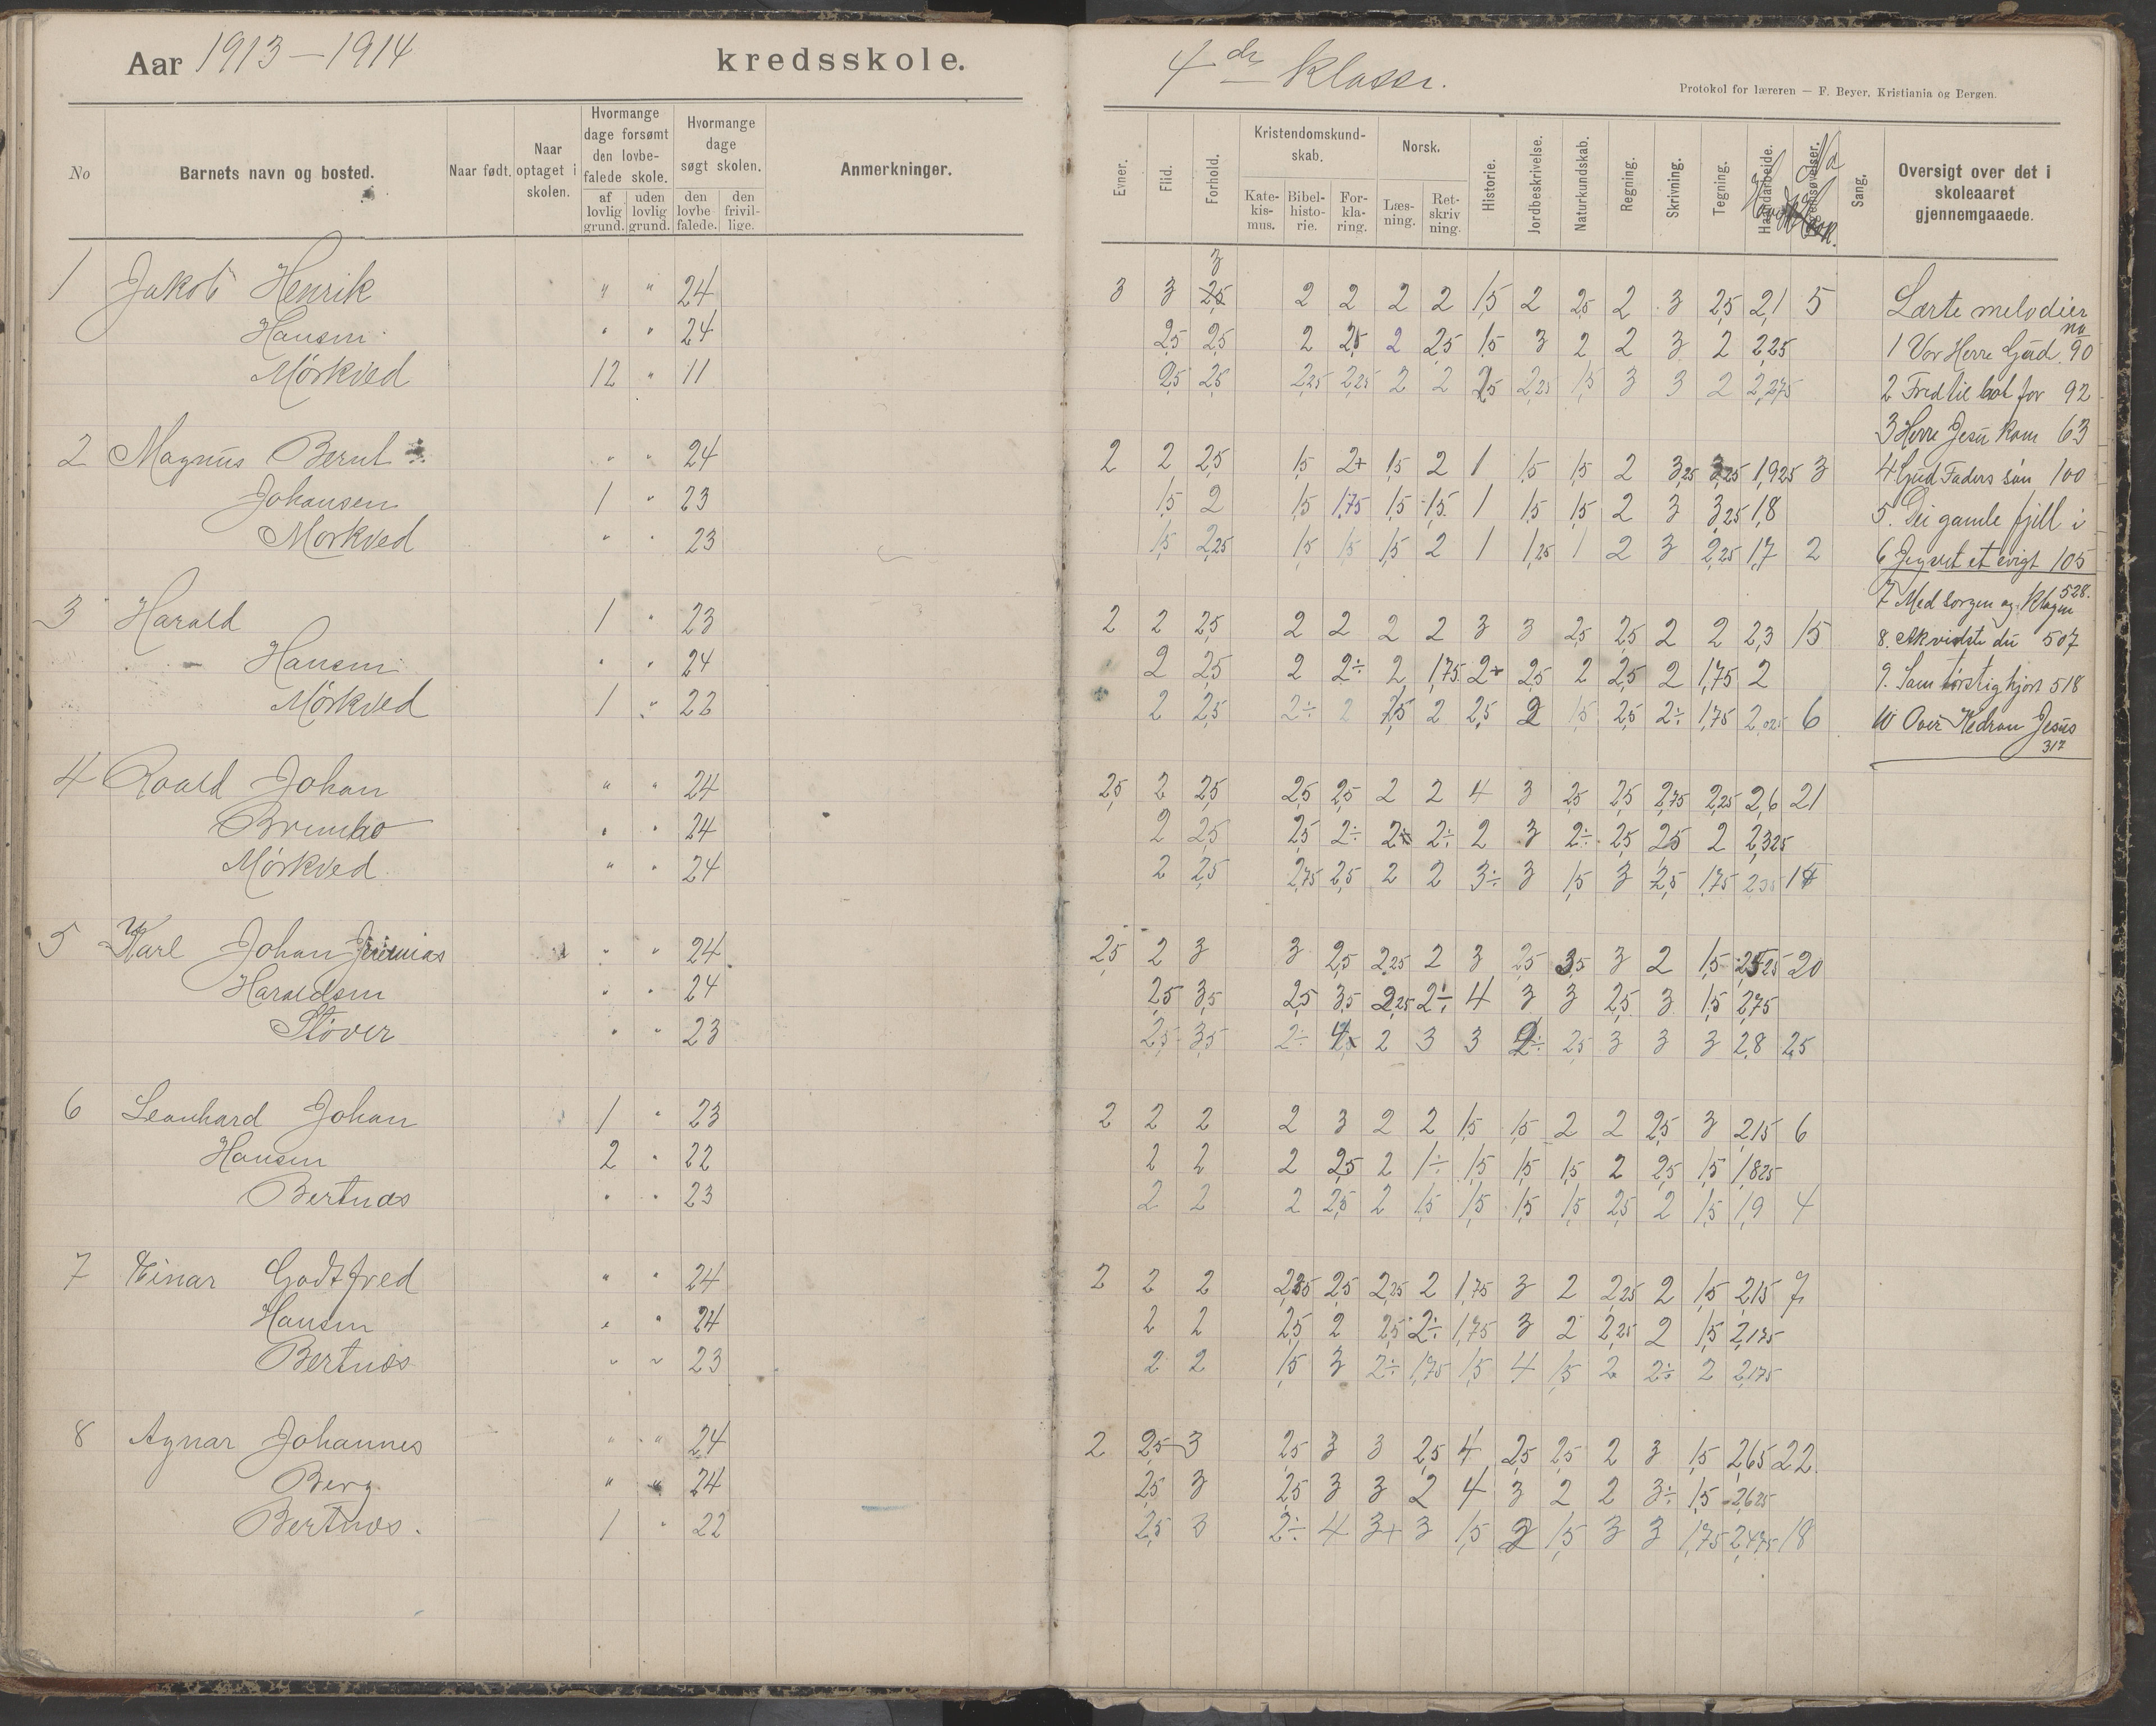 Aar 1913–1914 kredsskole.
4de klasse.
Protokol for læreren — F. Beyer, Kristiania og Bergen.
No
Barnets navn og bosted.
Naar født.
Naar optaget i skolen.
Hvormange dage forsømt den lovbefalede skole.
af lovlig grund.
uden lovlig grund.
Hvormange dage søgt skolen.
den lovbefalede.
den frivillige.
Anmerkninger.
Evner.
Flid.
Forhold.
Kristendomskundskab.
Katekismus.
Bibelhistorie.
Forklaring.
Norsk.
Læsning.
Retskrivning.
Historie.
Jordbeskrivelse.
Naturkundskab.
Regning.
Skrivning.
Tegning.
Haandarbeide.
Sang.
Oversigt over det i skoleaaret gjennemgaaede.
3
1 Jakob Henrik " " 24 3 3 2,5 2 2 2 2 1,5 2 2,5 2 3 2,5 2,1 5
Hansen " " 24 2,5 2,5 2 2,5 2 2,5 1,5 3 2 2 3 2 2,25
Mørkved 12 " 11 2,5 2,5 2,25 2,25 2 2 2,5 2,25 1,5 3 3 2 2,275
2 Magnus Bernt " " 24 2 2 2,5 1,5 2+ 1,5 2 1 1,5 1,5 2 3,25 3,25 1,925 3
Johansen 1 " 23 1,5 2 1,5 1,75 1,5 1,5 1 1,5 1,5 2 3 3,25 1,8
Mørkved " " 23 1,5 2,25 1,5 1,5 1,5 2 1 1,25 1 2 3 2,25 1,7 2
3 Harald 1 " 23 2 2 2,5 2 2 2 2 3 3 2,5 2,5 2 2 2,3 15
Hansen " " 24 2 2,5 2 2÷ 2 1,75 2+ 2,5 2 2,5 2 1,75 2
Mørkved 1 " 22 2 2,5 2÷ 2 1,5 2 2,5 2 1,5 2,5 2÷ 1,75 2,025 6
4 Roald Johan " " 24 2,5 2 2,5 2,5 2,5 2 2 4 3 2,5 2,5 2,75 2,25 2,6 21
" " 24 2 2,5 2,5 2÷ 2÷ 2÷ 2 3 2÷ 2,5 2,5 2 2,325
Mørkved " " 24 2 2,5 2,75 2,5 2 2 3÷ 3 1,5 3 2,5 1,75
5 Karl Johan Jeremias " " 24 2,5 2 3 3 2,5 2,25 2 3 2,5 3,5 3 2 1,5 2,525 20
Haraldsen " " 24 2,5 3,5 2,5 3,5 2,25 2÷ 4 3 3 2,5 3 1,5 2,75
Støver " " 23 2,5 3,5 2÷ 4 2 3 3 2÷ 2,5 3 3 3 2,8 25
6 Leonhard Johan 1 " 23 2 2 2 2 3 2 2 1,5 1,5 2 2 2,5 3 2,15 6
Hansen 2 " 22 2 2 2 2,5 2 1÷ 1,5 1,5 1,5 2 2,5 1,5 1,825
Bertnæs " " 23 2 2 2 2,5 2 1,5 1,5 1,5 1,5 2,5 2 1,5 1,9 4
7 Einar Godtfred " " 24 2 2 2 2,25 2,5 2,25 2 1,75 3 2 2,25 2 1,5 2,15 7
Hansen " " 24 2 2 2,5 2 2,5 2÷ 1,75 3 2 2,25 2 1,5 2,175
Bertnæs " " 23 2 2 1,5 3 2÷ 1,75 1,5 4 1,5 2 2÷ 2 2,175
8 Agnar Johannes " " 24 2 2,5 3 2,5 3 3 2,5 4 2,5 2,5 2 3 1,5 2,65 22
Berg " " 24 2,5 3 2,5 3 3 2 4 3 2 2 3÷ 1,5 2,625
Bertnæs. 1 " 22 2,5 3 2÷ 4 3+ 3 1,5 2 1,5 3 3 1,75 2,475 18
Lærte melodier
no
1 Vor Herre Gud 90
2 Fred til bot for 92
3 Herre Jesu kom 63
4 Gud Faders søn 100
5. Dei gamle fjell i
6 Jeg vet et evigt 105
7 Med sorgen og klagen 528.
8. Ak vidste du 507
9. Som tørstig hjort 518
10 Over Kedron Jesus
317